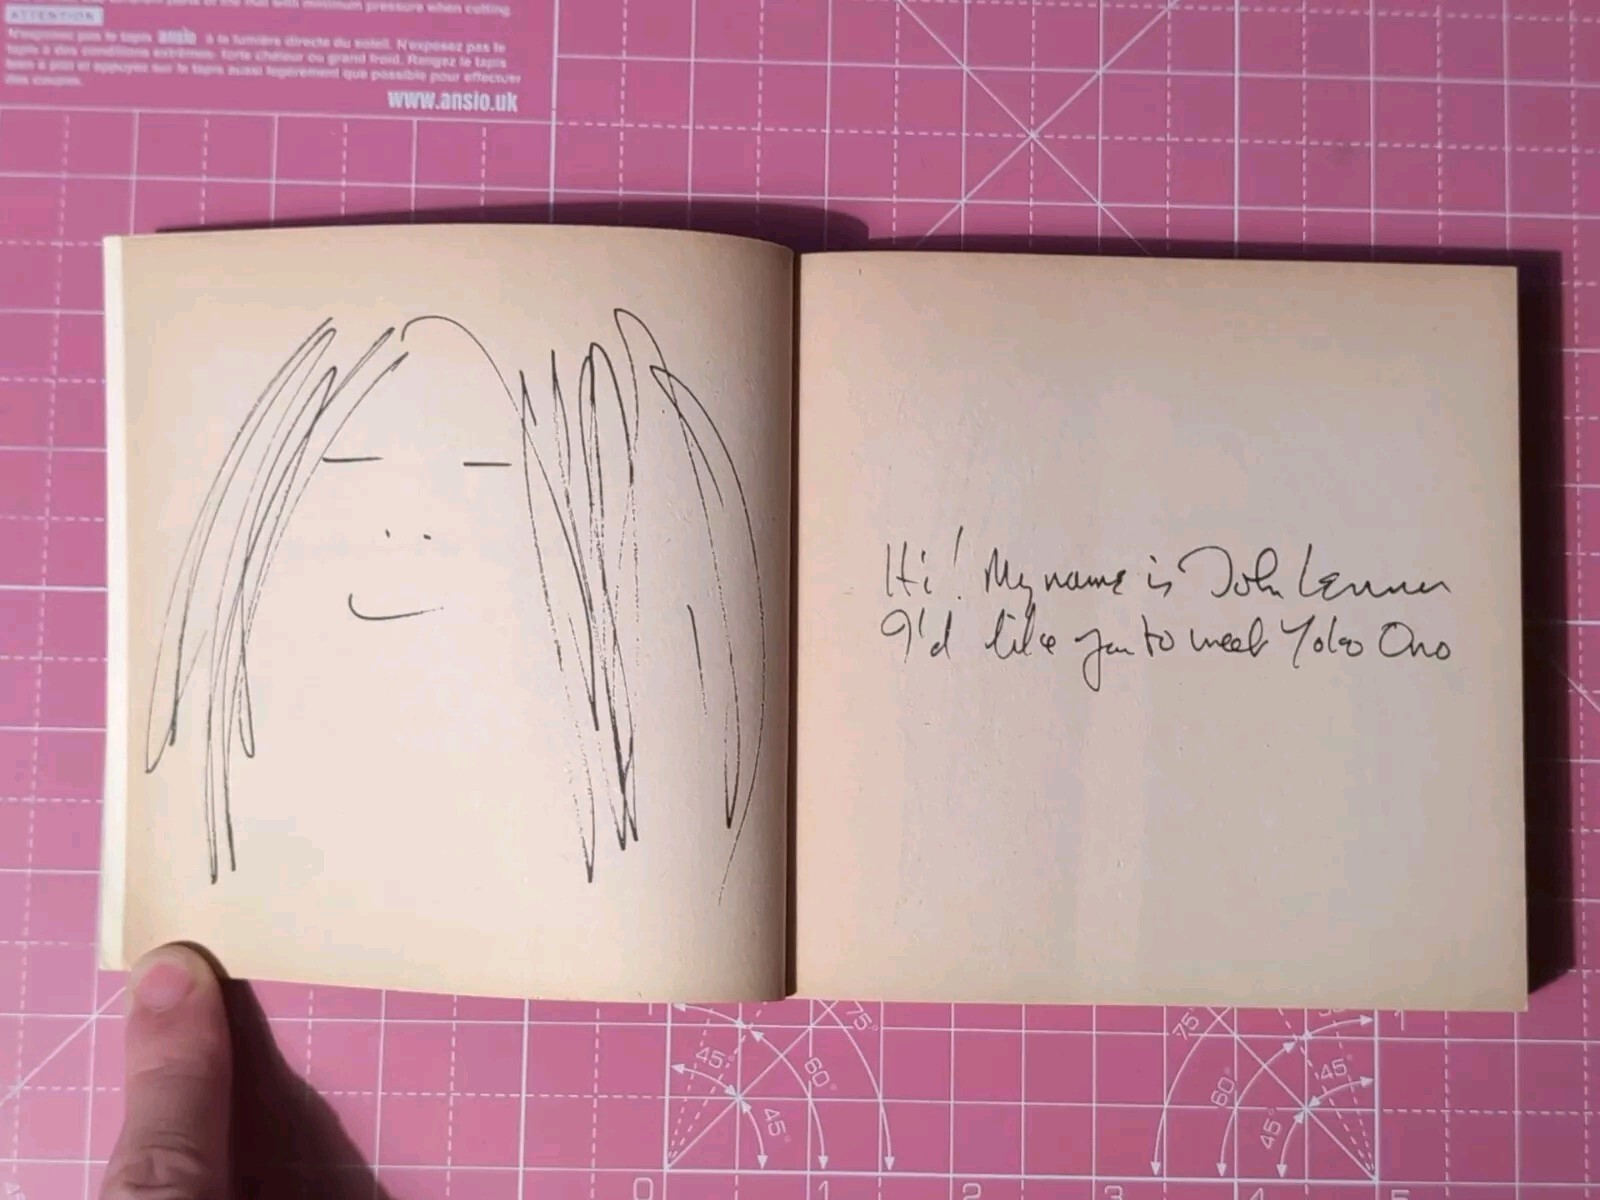 of the mat with minimum pressure when cutting.
ATTENTION
N'exposez pas le tapis ansio à la lumière directe du soleil. N'exposez pas le
tapis à des conditions extrêmes: forte chaleur ou grand froid. Rangez le tapis
bien à plat et appuyez sur le tapis aussi légèrement que possible pour effectuer
des coupes.
www.ansio.uk
Hi! My name is John Lennon
I'd like you to meet Yoko Ono
1 75° 75° 1
45° 60° 60° 45°
45° 45°
0 1 2 3 4 5
45